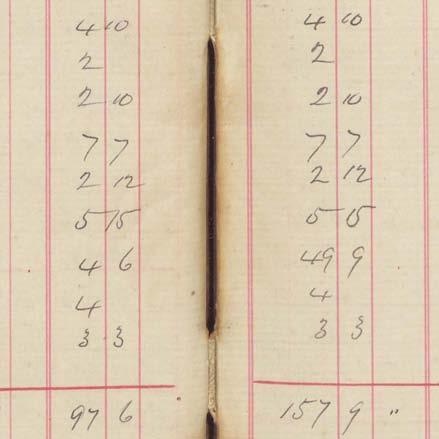 4 10
2
2 10
7 7
2 12
5 15
4 6
4
3 3
97 6
4 10
2
2 10
7 7
2 12
5 15
49 9
4
3 3
157 9 "